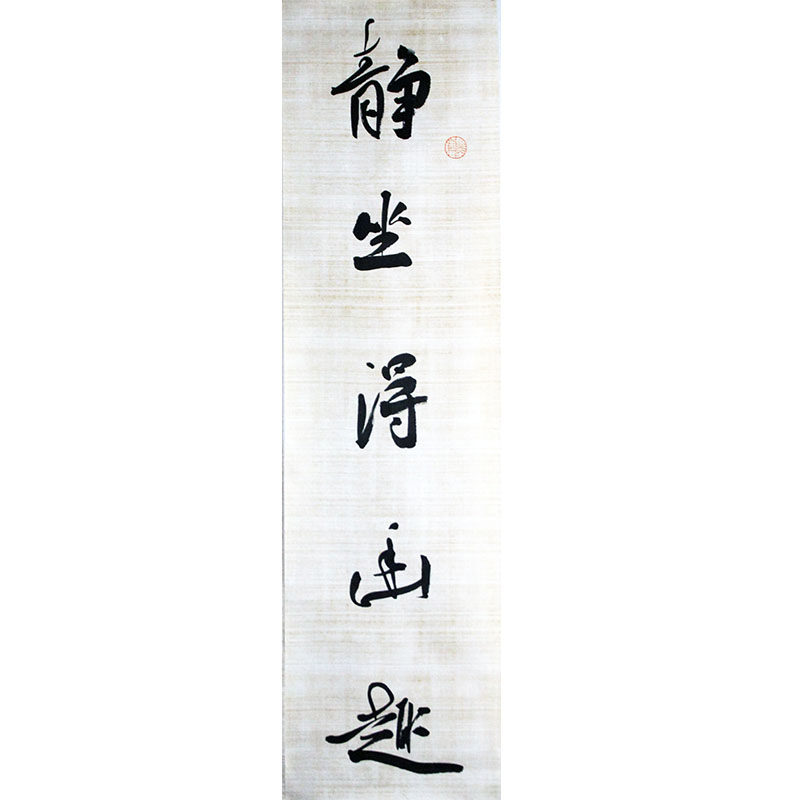 静坐得幽趣